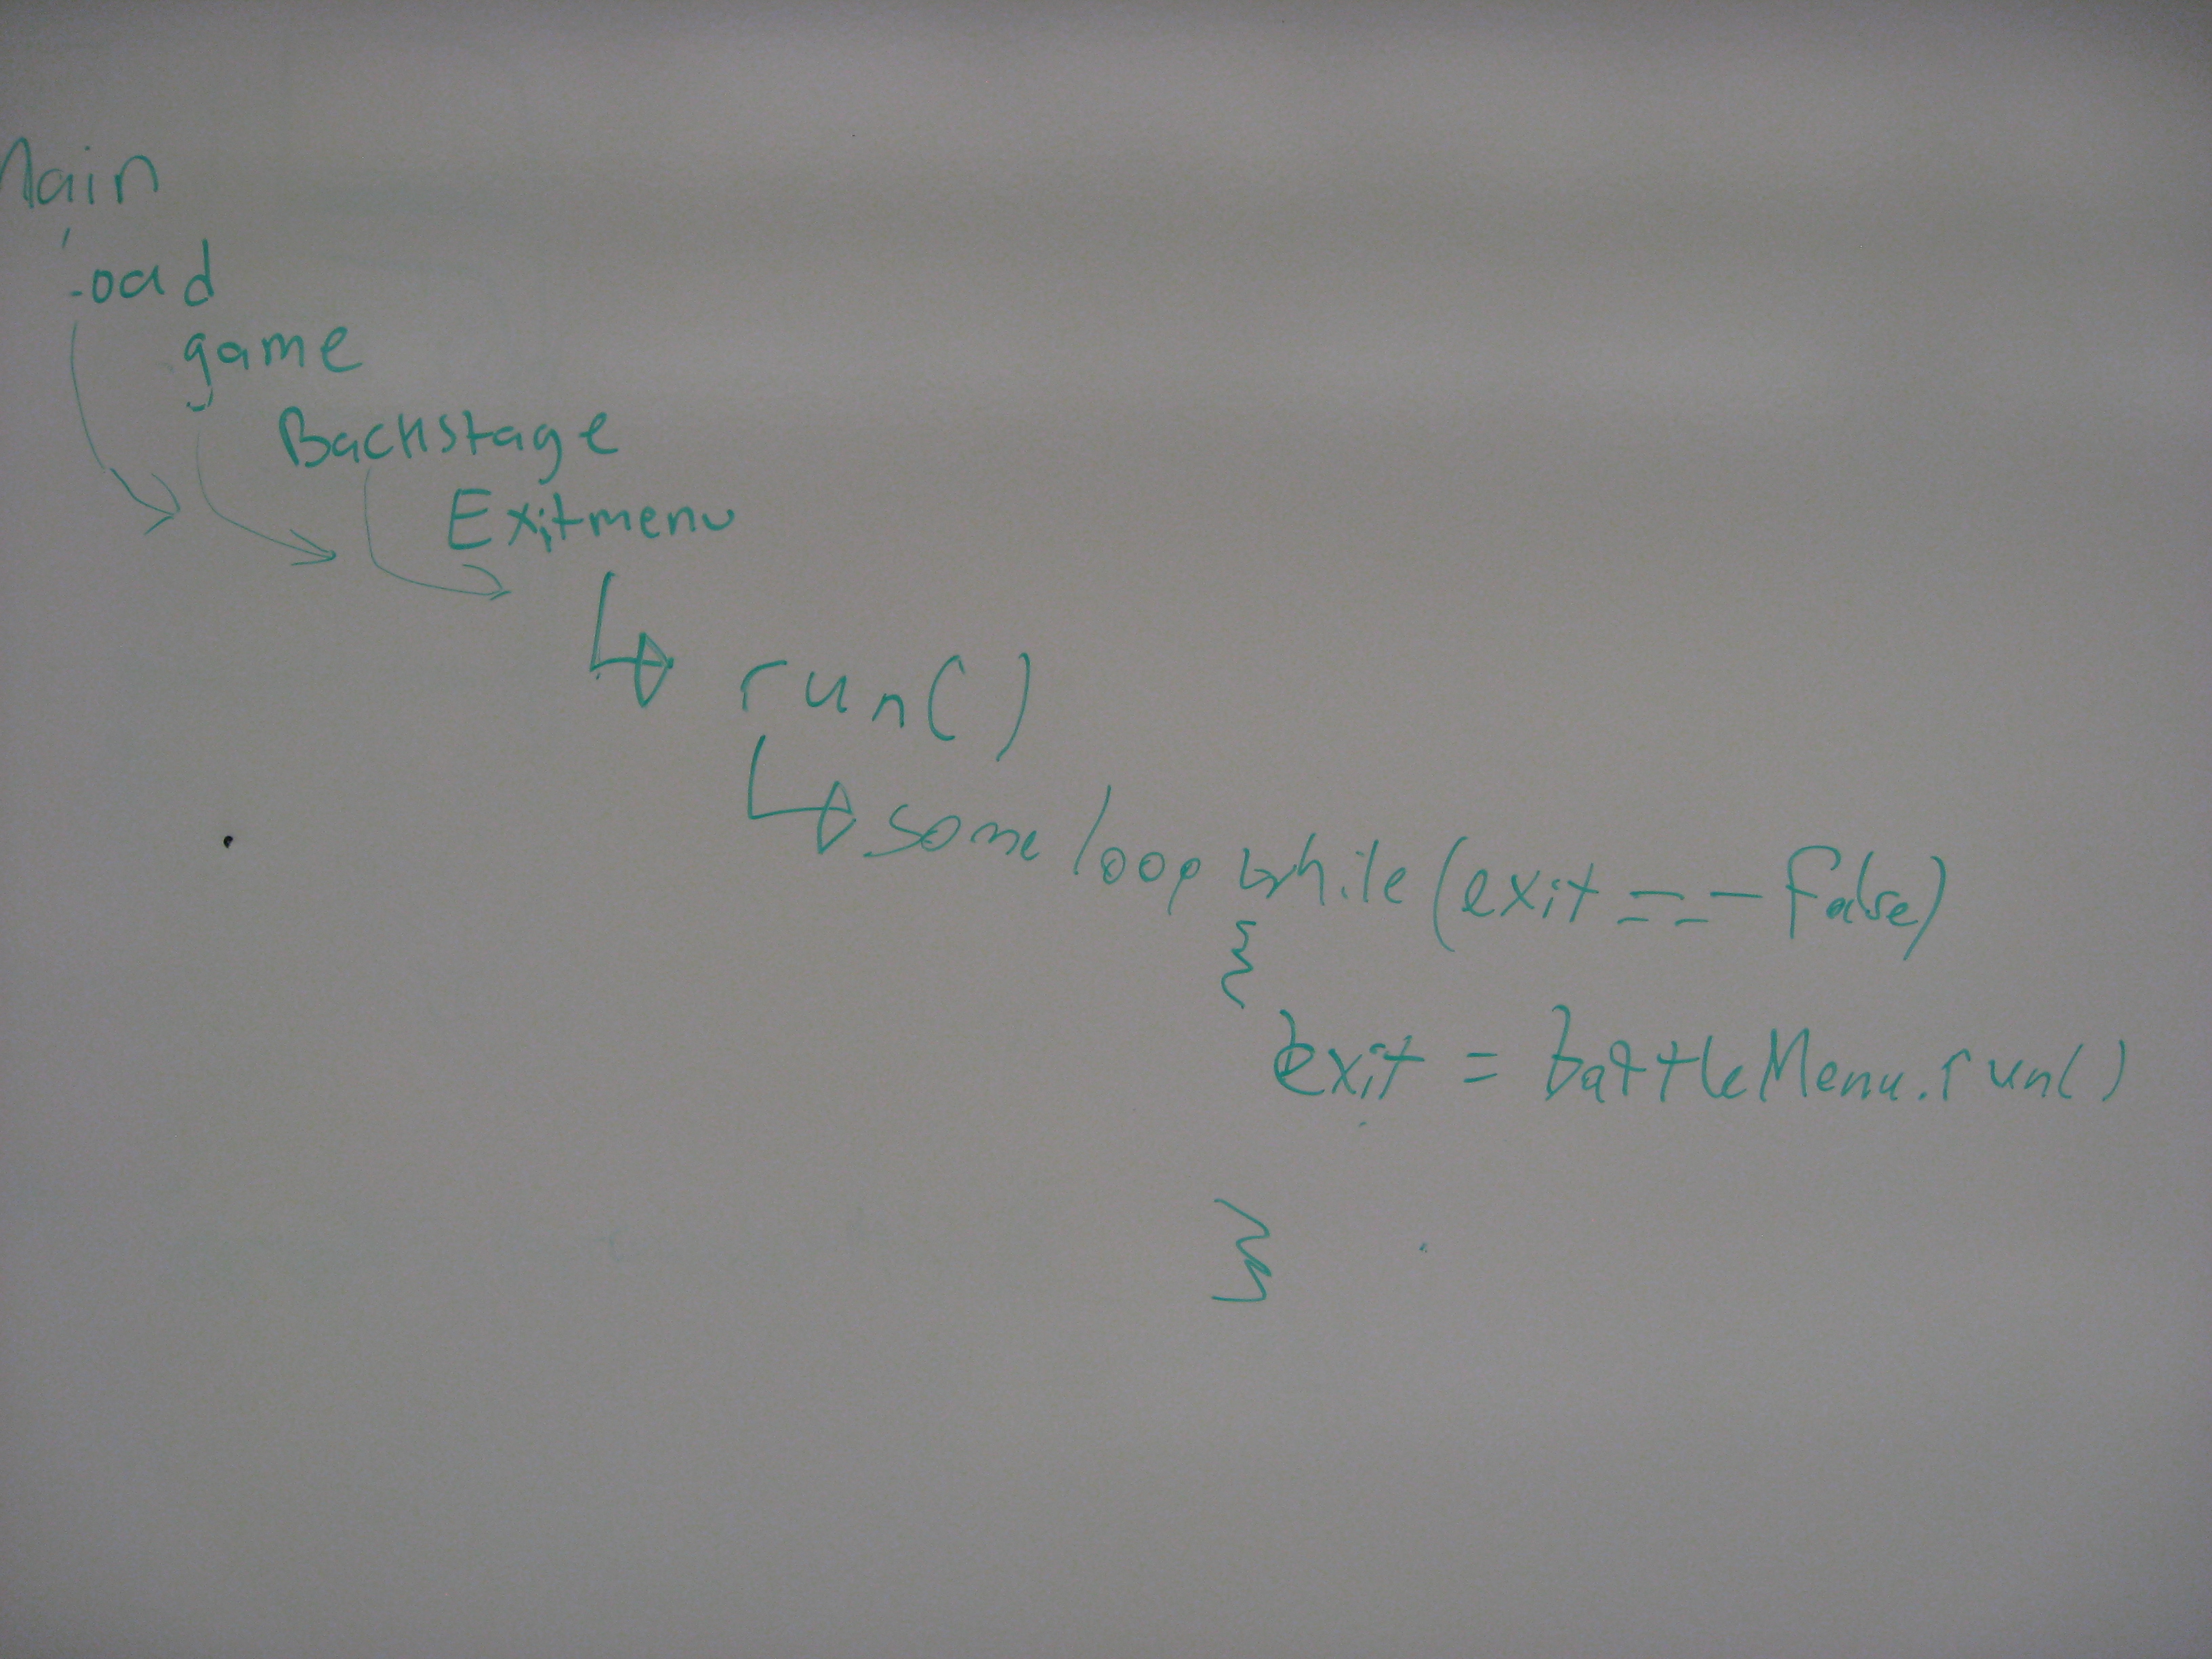 Main
Load
game
Backstage
Exitmenu
run()
some loop while (exit == false)
{
exit = battleMenu.run()
}